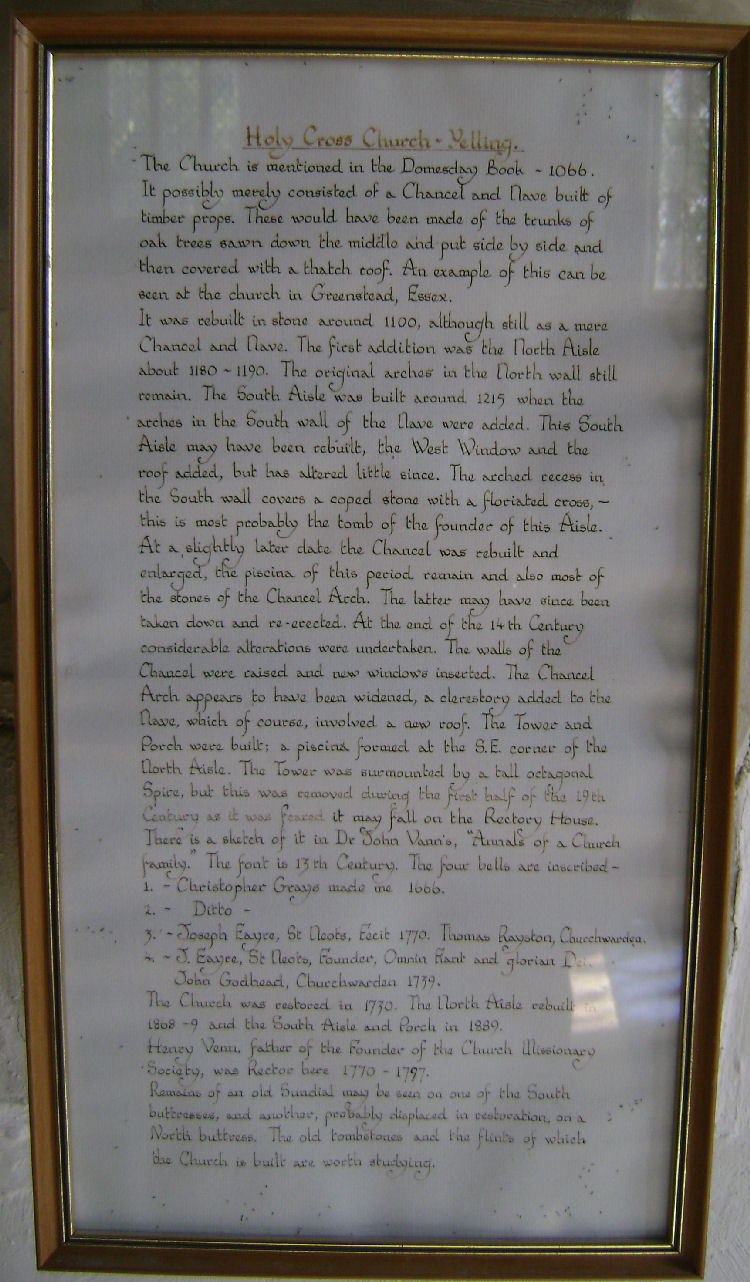 Holy Cross Church - Yelling.
The Church is mentioned in the Domesday Book ~ 1066.
It possibly merely consisted of a Chancel and Nave built of
timber props. These would have been made of the trunks of
oak trees sawn down the middle and put side by side and
then covered with a thatch roof. An example of this can be
seen at the church in Greenstead, Essex.
It was rebuilt in stone around 1100, although still as a mere
Chancel and Nave. The first addition was the North Aisle
about 1180 ~ 1190. The original arches in the North wall still
remain. The South Aisle was built around 1215 when the
arches in the South wall of the Nave were added. This South
Aisle may have been rebuilt, the West Window and the
roof added, but has altered little since. The arched recess in
the South wall covers a coped stone with a floriated cross, -
this is most probably the tomb of the founder of this Aisle.
At a slightly later date the Chancel was rebuilt and
enlarged, the piscina of this period remain and also most of
the stones of the Chancel Arch. The latter may have since been
taken down and re-erected. At the end of the 14th Century
considerable alterations were undertaken. The walls of the
Chancel were raised and new windows inserted. The Chancel
Arch appears to have been widened, a clerestory added to the
Nave, which of course, involved a new roof. The Tower and
Porch were built; a piscina formed at the S.E. corner of the
North Aisle. The Tower was surmounted by a tall octagonal
Spire, but this was removed during the first half of the 19th
Century as it was feared it may fall on the Rectory House.
There is a sketch of it in Dr John Vann's, "Annals of a Church
family." The font is 13th Century. The four bells are inscribed -
1. - Christopher Grays made me 1666.
2. - Ditto -
3. ~ Joseph Eayre, St Neots, Fecit 1770. Thomas Rayston, Churchwarden.
4. ~ J. Eayre, St Neots, Founder, Omnia Fiant and glorian Dei.
John Godhead, Churchwarden 1739.
The Church was restored in 1730. The North Aisle rebuilt in
1868 -9 and the South Aisle and Porch in 1889.
Henry Venn, father of the Founder of the Church Missionary
Society, was Rector here 1770 - 1797.
Remains of an old Sundial may be seen on one of the South
buttresses, and another, probably displaced in restoration, on a
North buttress. The old tombstones and the flints of which
the Church is built are worth studying.